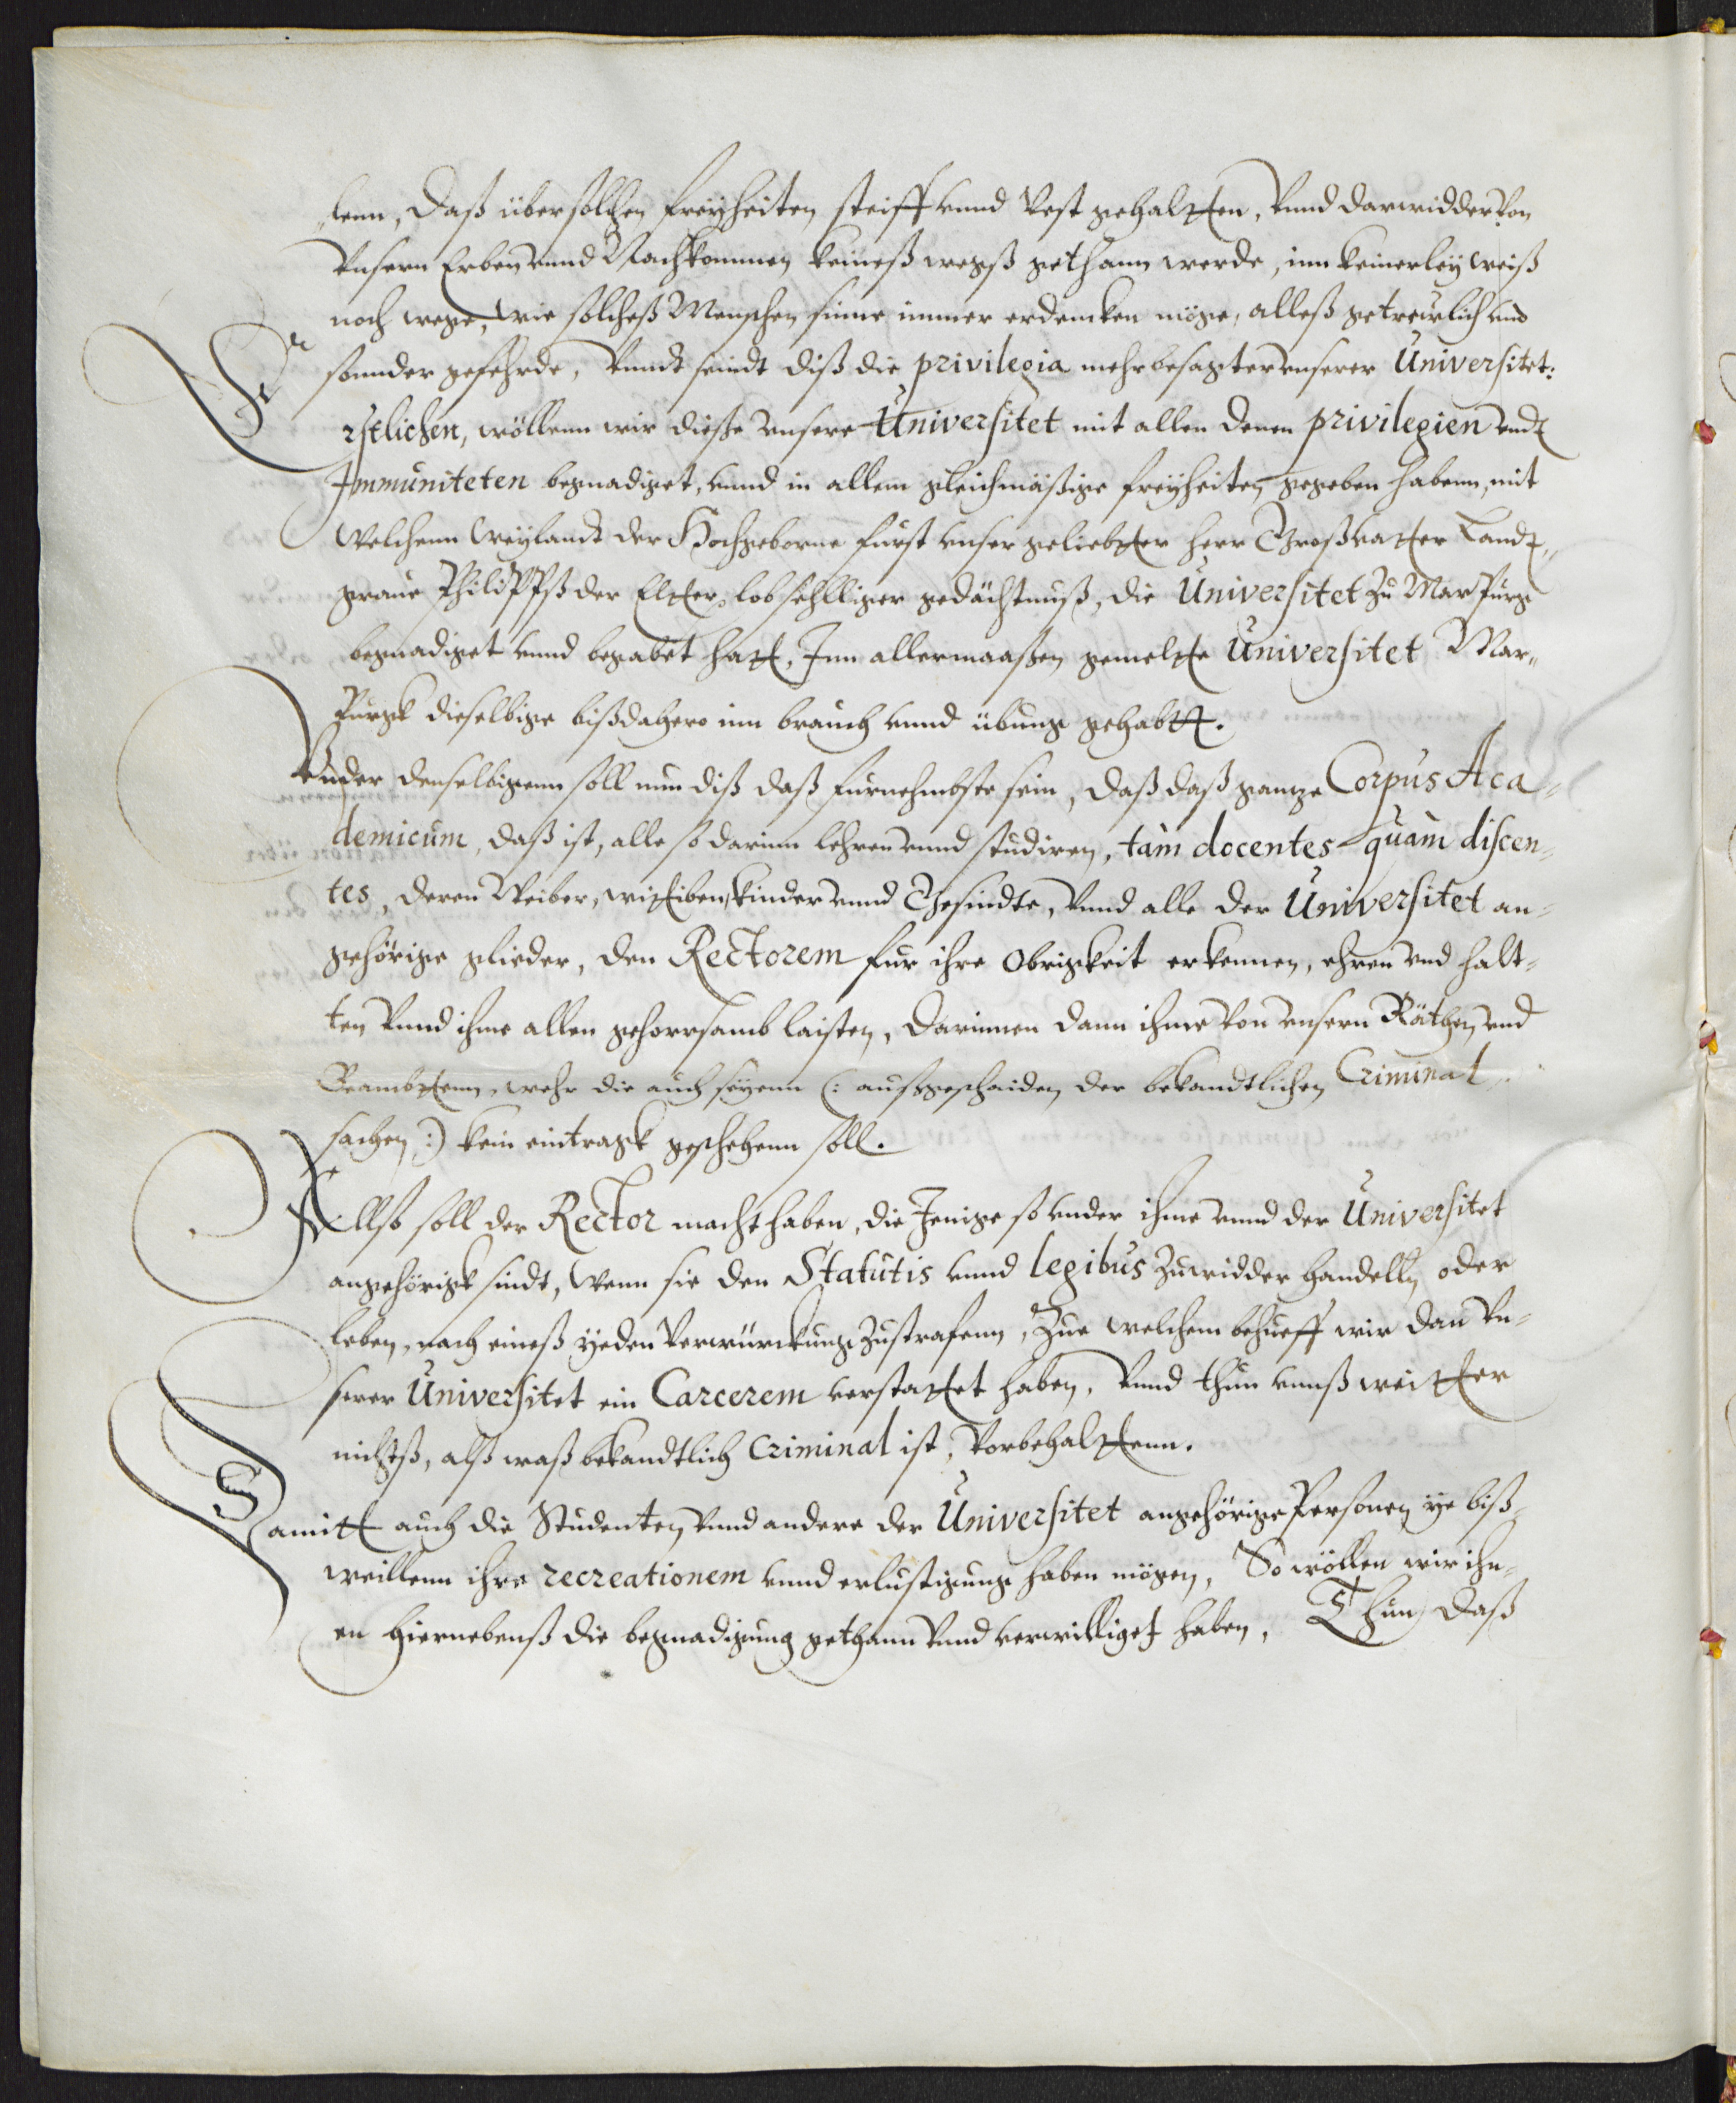 lenn, Daß über solchen freyheiten, steiff vnnd Vest gehaltten, Vnnd darwidder Von
Vnsern Erben vnnd Nachkommen keineß wegß gethann werde, inn keinerley weiß
noch wege, wie solcheß Menschen sinne immer erdencken möge, alleß getreẅlich vnd
sonnder gefehrde, Vnndt seindt diß die privilegia mehrbesagter vnserer Universitet:
Erstlichen, wöllenn wir dieße vnsere Universitet mit allen denen privilegien vndt
Immuniteten begnadiget, vnnd in allem gleichmäßige freyheiten gegeben habenn, mit
Welchenn Weylandt der Hochgeborne fürst vnser geliebtter herr Großvatter Landt„
graue Philippß der Eltter, lobsehlliger gedächtnuß, die Universitet zu Marpurg
begnadiget vnnd begabet hatt, Inn allermaaßen gemeltte Universitet Mar„
purgk dieselbige bißdahero inn brauch vnnd übung gehabtt.
Vnder denselbigenn soll nun diß daß fürnehmbste sein, Daß daß gantze Corpus Aca„
demicum, daß ist, alle so darinn lehren vnnd studiren, tàm docentes quàm discen„
tes, deren Weiber, wittiben, kinder vnnd Gesindte, Vnnd alle der Universitet an„
gehörige glieder, den Rectorem für ihre Obrigkeit erkennen, ehren vnd halt„
ten Vnnd ihme allen gehorrsamb laisten, Darinnen dann ihme von vnsern Räthen vnd
Beambttenn, wehr die auch seyenn (: außgeschaiden der bekandtlichen Criminal„
sachen :) kein eintragk geschehenn soll.
Allß soll der Rector macht haben, die Jenige so vnder ihme vnnd der Universitet
angehörigk sindt, Wenn sie den Statutis vnnd legibus zuwidder handelln oder
leben, nach eineß yeden Verwürckung zustrafenn, Zue welchem behueff wir dan Vn„
serer Universitet ein Carcerem verstattet haben, Vnnd thun vnnß weitter
nichtß, alß waß bekandtlich Criminal ist, Vorbehalttenn.
Damitt auch die Studenten Vnnd andere der Universitet angehörige Personen ye biß„
weillenn ihre recreationem vnnd erlustigung haben mögen, So wöllen wir ihn„
en hiernebenß die begnadigung gethann Vnnd verwilliget haben, Thun daß